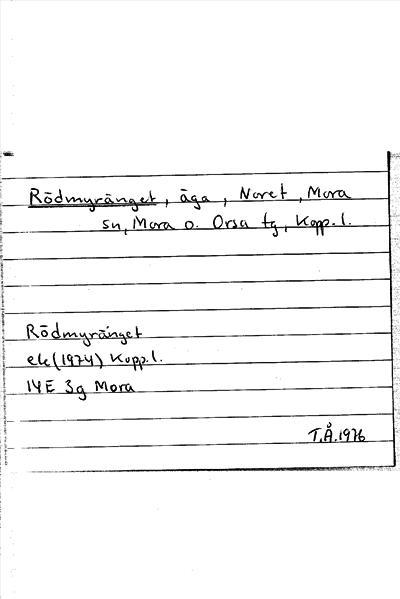 Rödmyränget, äga, Noret, Mora
sn, Mora o. Orsa tg, Kopp. l.
Rödmyränget
ek (1974) Kopp. l.
14E 3g Mora
T.Å. 1976